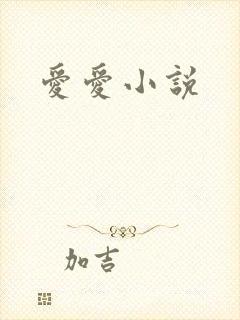 愛愛小說
加吉